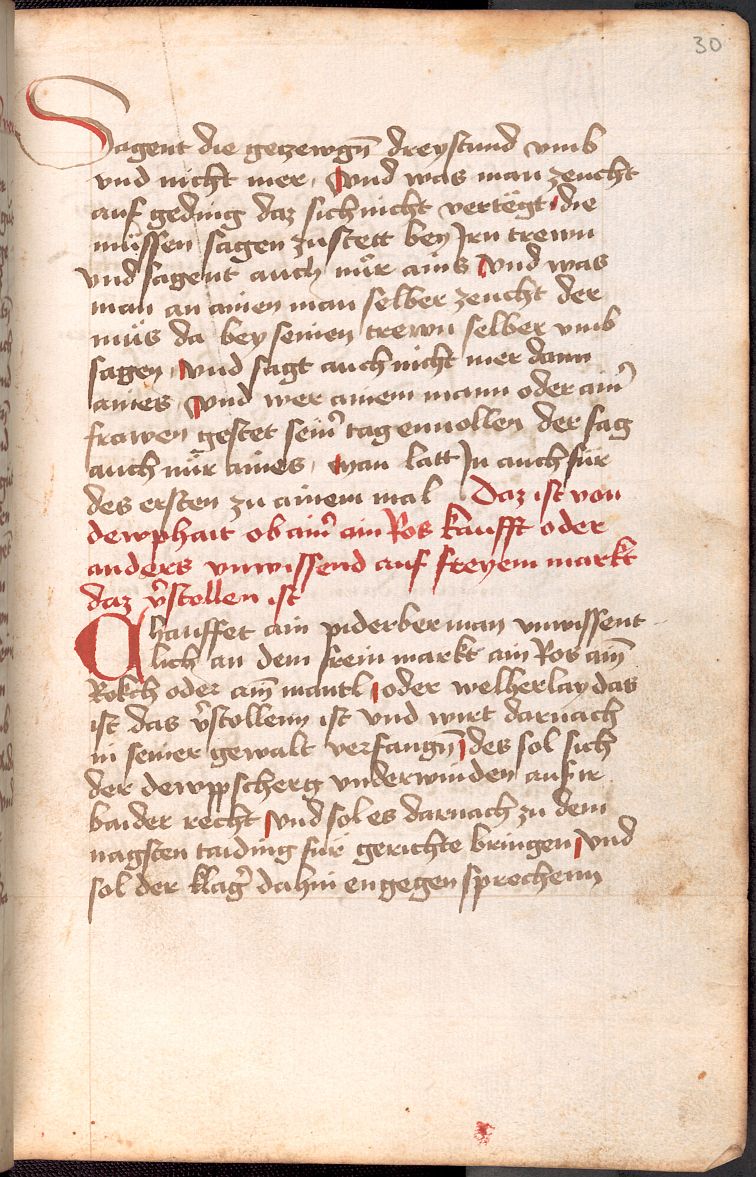 30
Sagent die getzewgn̄ dreystund vmb
vnd nicht mer, Vnd was man zeucht
auf geding daz sich nicht vertëgt, die
müssen sagen zustett bey Jrn trewn
vnd sagent auch nür ains Vnd was
man an ainen man selber zeucht der
müs da bey seinen trewn selber vmb
sagen, Vnd sagt auch nicht mer dann
aines, Vnd wer ainem mann oder aiñ
frawen gestet seiñ tagenuollen der sag
auch nür aines, man latt Jn auch für
des ersten zu ainem mal. Daz ist von
dewphait ob aiñ ain Ros kaufft oder
anders vnwissend auf freyem markt
daz v̄stollen ist
Chauffet ain piderberman vnwissent
lich an dem frein markt ain Ros aiñ
Rokch oder aiñ mantl, oder welherlay das
ist das v̄stollenn ist vnd wirt darnach
in seiner gewalt verfangn̄, des sol sich
der dewppscherg vnderwinden auf ir
baider recht, vnd sol es darnach zu dem
nagsten taiding für gerichte bringen, Vnd
sol der klaḡ dahin engegen sprechenn